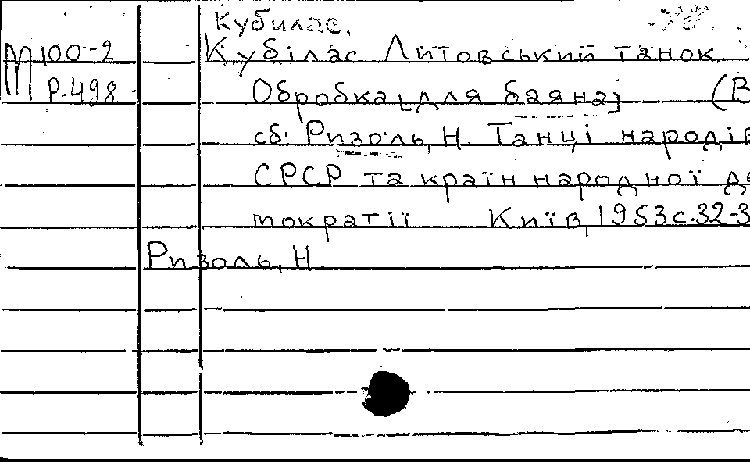 Кубилас.
М 100-2 Кубілас Литовський танок
Р-498 Обробка [для баяна] (В
сб: Ризоль, Н. Танці народів
СРСР та країн народної де
мократії Київ, 1953 с.32-3
Ризоль, Н